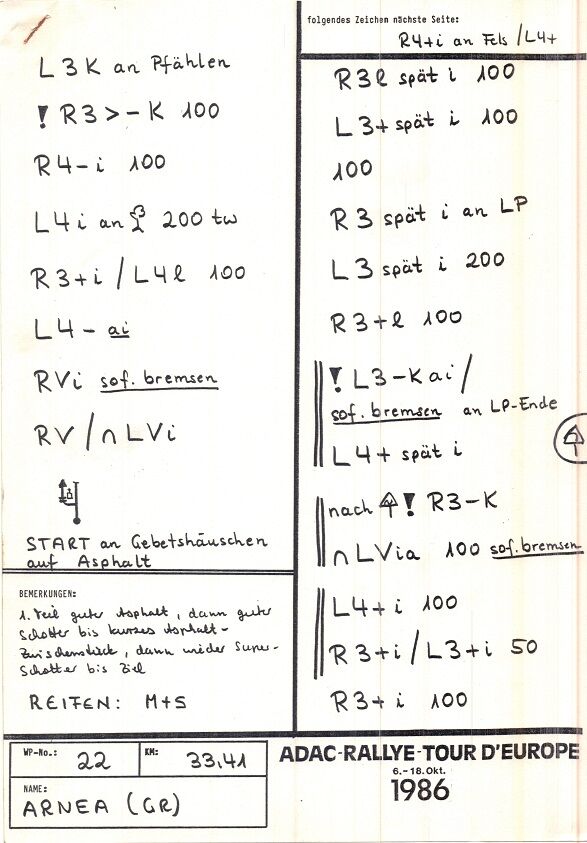 L3K an Pfählen
! R3>-K 100
R4-i 100
L4i an 200 tw
R3+i / L4l 100
L4- ai
RVi sof. bremsen
RV / ∩ LVi
START an Gebetshäuschen
auf Asphalt
BEMERKUNGEN:
1. Teil guter Asphalt, dann guter
Schotter bis kurzes Asphalt-
Zwischenstück, dann wieder Super-
Schotter bis Ziel
REIFEN: M+S
folgendes Zeichen nächste Seite:
R4+i an Fels / L4+
R3l spät i 100
L3+ spät i 100
100
R3 spät i an LP
L3 spät i 200
R3+l 100
! L3-K ai /
sof. bremsen an LP-Ende
L4+ spät i
nach ! R3-K
∩ LVia 100 sof. bremsen
L4+i 100
R3+i / L3+i 50
R3+i 100
WP-No.: 22 KM: 33,41
NAME:
ARNEA (GR)
ADAC-RALLYE-TOUR D'EUROPE
6.-18. Okt.
1986